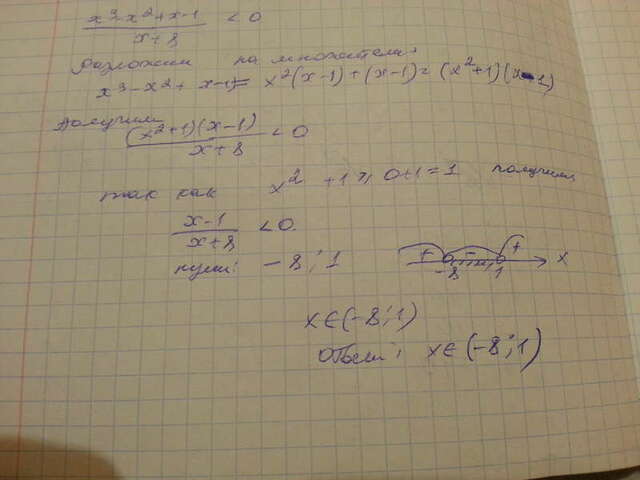 x³-x²+x-1 / x+8 < 0
Разложим на множители:
x³-x²+x-1 = x²(x-1)+(x-1) = (x²+1)(x-1)
Получим
(x²+1)(x-1) / x+8 < 0
так как x²+1 ≥ 0+1 = 1 получим
x-1 / x+8 < 0.
нули: -8; 1
+ - + x
-8 1
x∈(-8;1)
Ответ: x∈(-8;1)